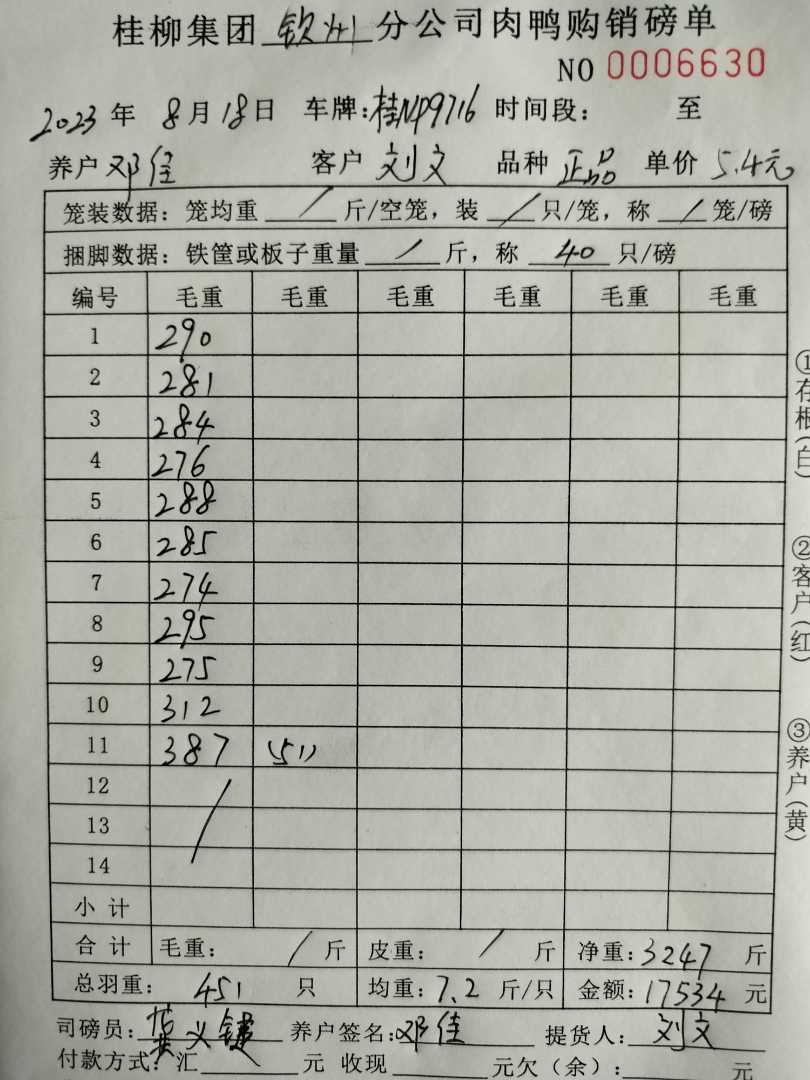 桂柳集团 钦州 分公司肉鸭购销磅单
NO 0006630
2023 年 8 月 18 日 车牌:桂NP9716 时间段: 至
养户 邓佳 客户 刘文 品种 正品 单价 5.4元
笼装数据: 笼均重 / 斤/空笼, 装 / 只/笼, 称 / 笼/磅
捆脚数据: 铁筐或板子重量 / 斤, 称 40 只/磅
编号 毛重 毛重 毛重 毛重 毛重 毛重
1 290
2 281
3 284
4 276
5 288
6 285
7 274
8 295
9 275
10 312
11 387 (51)
12 /
13
14
小计
合计 毛重: / 斤 皮重: / 斤 净重: 3247 斤
总羽重: 451 只 均重: 7.2 斤/只 金额: 17534 元
司磅员: 黄义键 养户签名: 邓佳 提货人: 刘文
付款方式: 汇 元 收现 元欠(余): 元
①存根(白)
②客户(红)
③养户(黄)